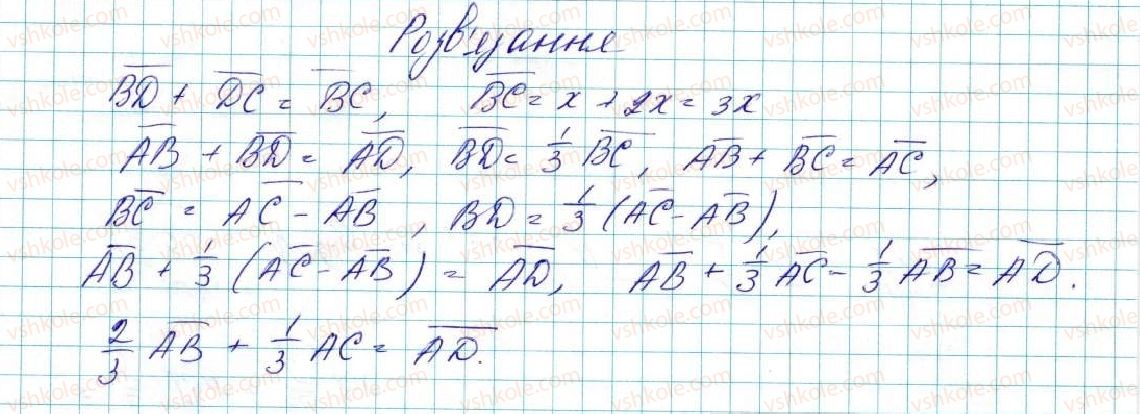 Розв'язання
B̅D̅ + D̅C̅ = B̅C̅, B̅C̅ = x + 2x = 3x
A̅B̅ + B̅D̅ = A̅D̅, B̅D̅ = 1/3 B̅C̅, A̅B̅ + B̅C̅ = A̅C̅,
B̅C̅ = A̅C̅ - A̅B̅, BD = 1/3 (A̅C̅ - A̅B̅),
A̅B̅ + 1/3 (A̅C̅ - A̅B̅) = A̅D̅, A̅B̅ + 1/3 A̅C̅ - 1/3 A̅B̅ = A̅D̅.
2/3 A̅B̅ + 1/3 AC = A̅D̅.